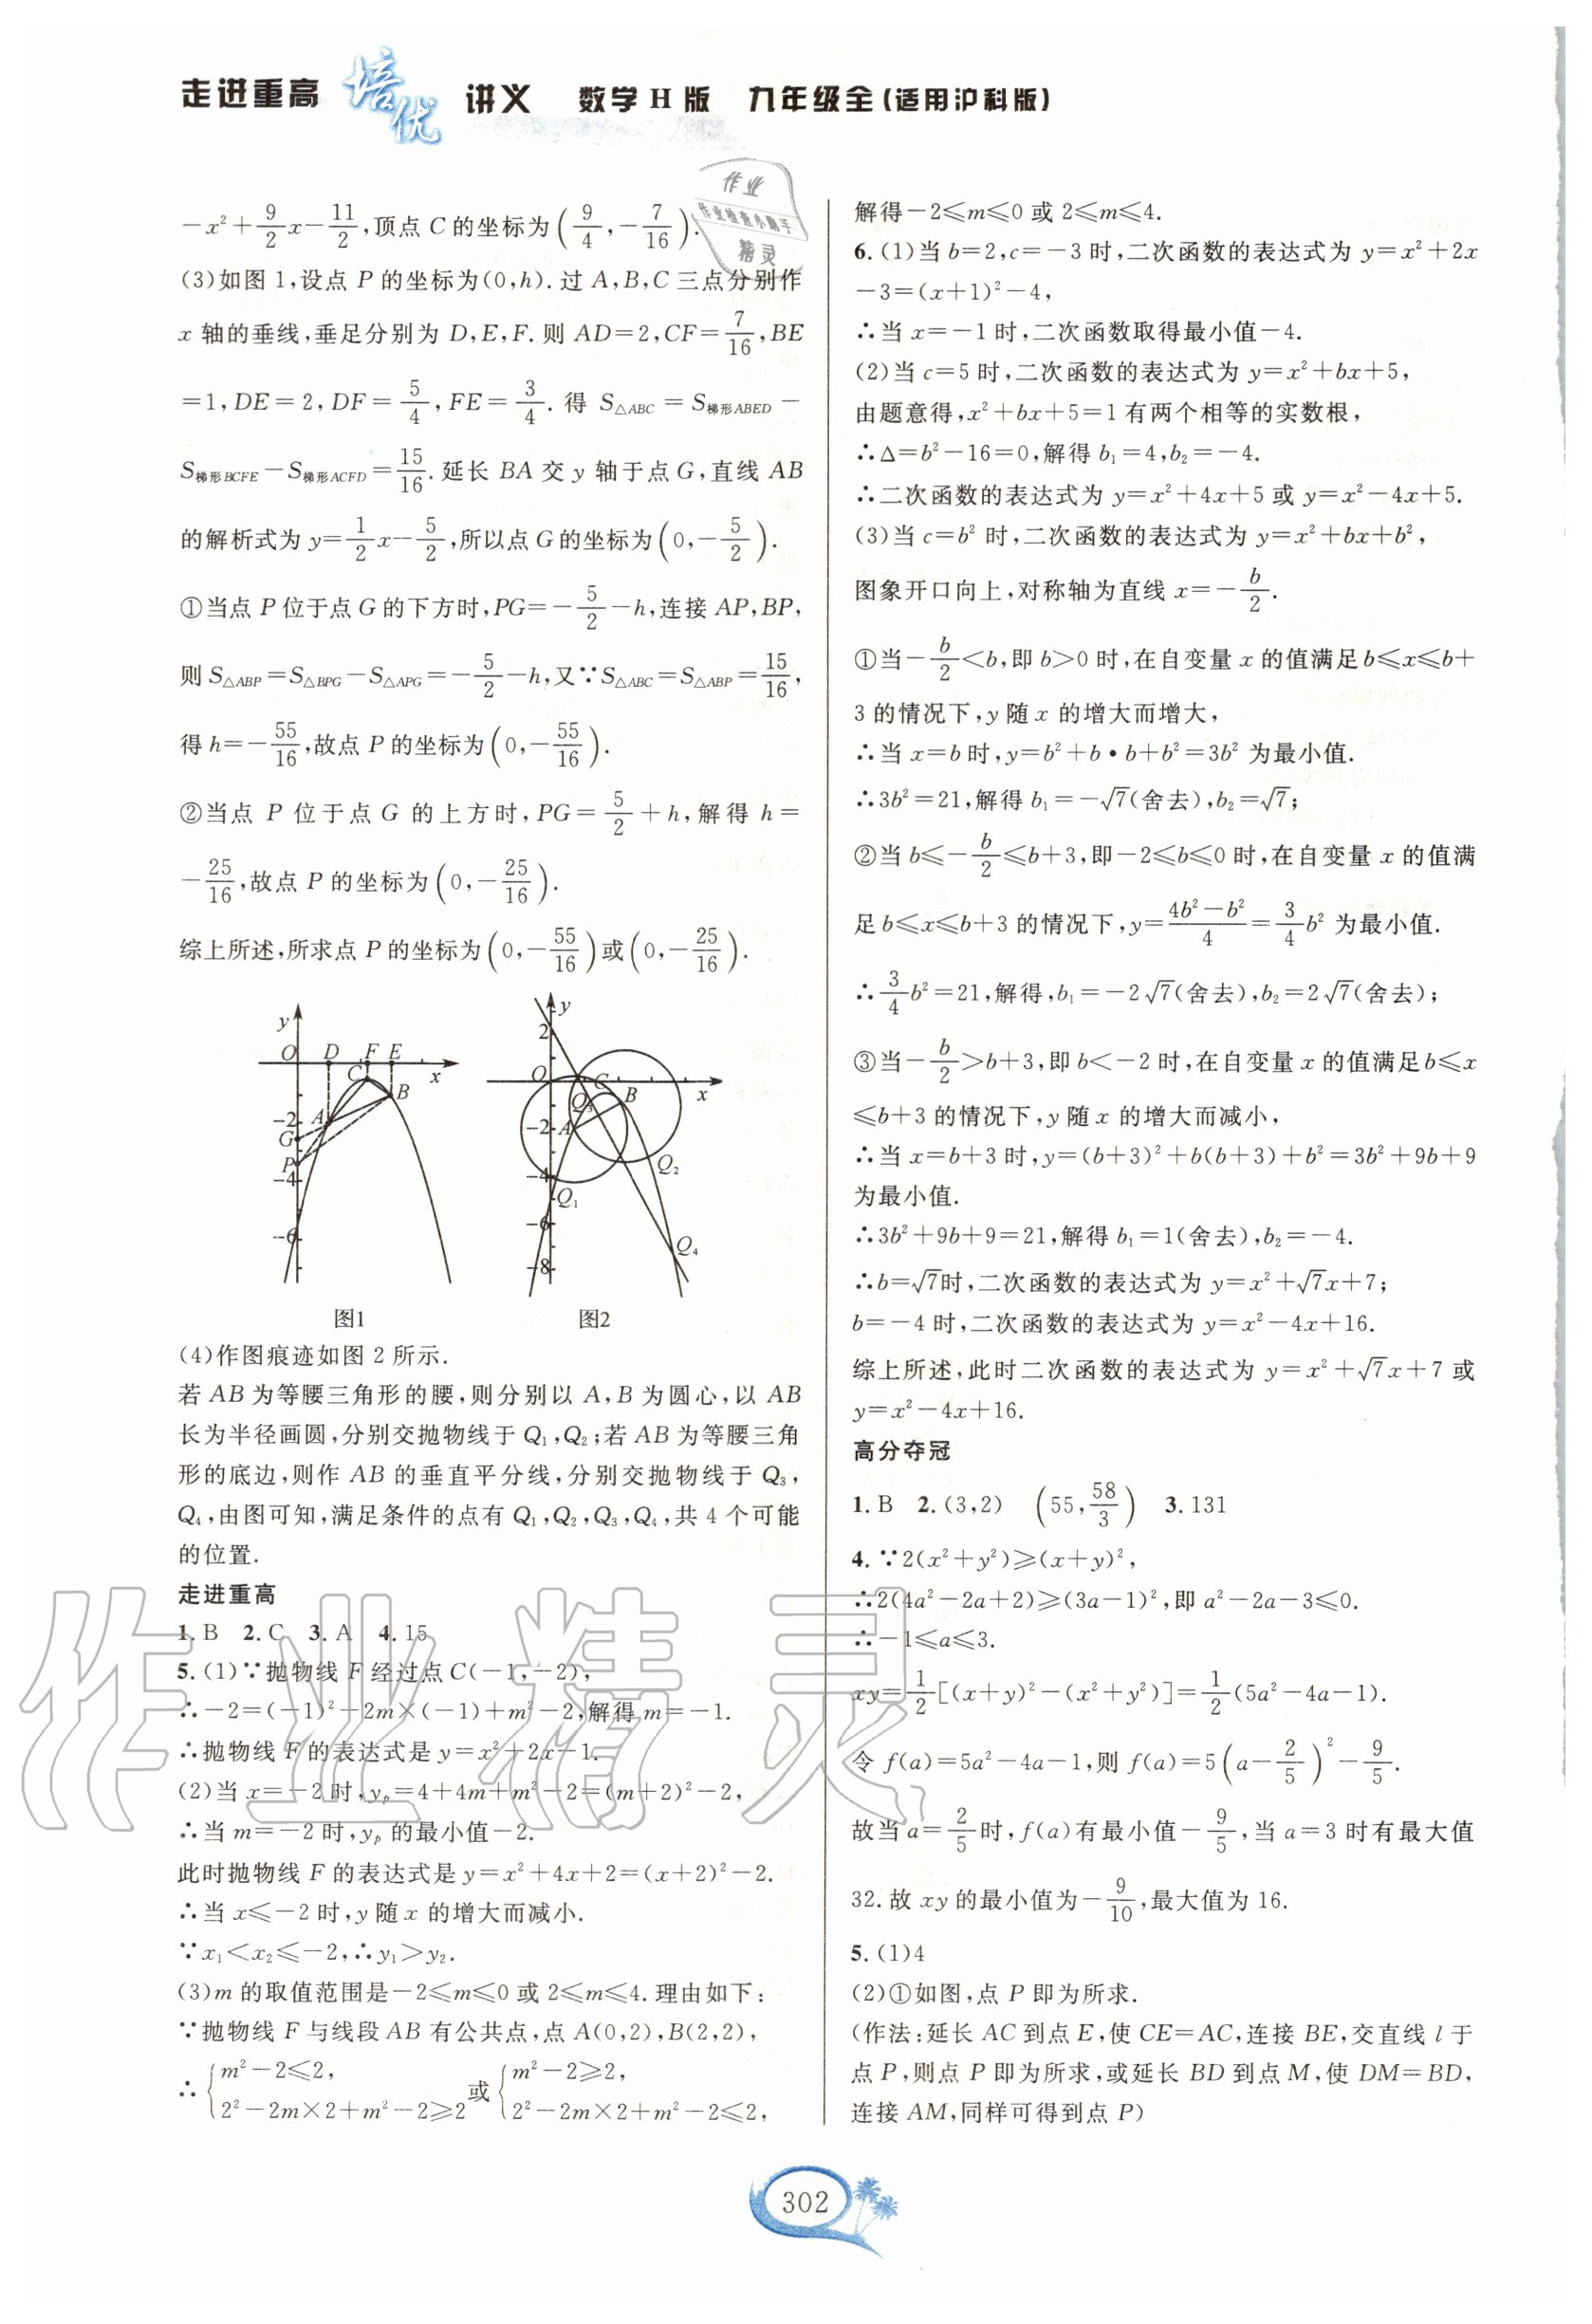 走进重高 培优 讲义 数学H版 九年级全(适用沪科版)
作业
作业检查小助手
精灵
-x²+9/2x-11/2,顶点C的坐标为(9/4,-7/16).
(3)如图1,设点P的坐标为(0,h).过A,B,C三点分别作
x轴的垂线,垂足分别为D,E,F.则AD=2,CF=7/16,BE
=1,DE=2,DF=5/4,FE=3/4.得S△ABC=S梯形ABED-
S梯形BCFE-S梯形ACFD=15/16.延长BA交y轴于点G,直线AB
的解析式为y=1/2x-5/2,所以点G的坐标为(0,-5/2).
①当点P位于点G的下方时,PG=-5/2-h,连接AP,BP,
则S△ABP=S△BPG-S△APG=-5/2-h,又∵S△ABC=S△ABP=15/16,
得h=-55/16,故点P的坐标为(0,-55/16).
②当点P位于点G的上方时,PG=5/2+h,解得h=
-25/16,故点P的坐标为(0,-25/16).
综上所述,所求点P的坐标为(0,-55/16)或(0,-25/16).
y O D F E x C B A G P -2 -4 -6
图1
y 2 O C x Q₃ B A -2 -4 Q₂ Q₁ -6 Q₄ -8
图2
(4)作图痕迹如图2所示.
若AB为等腰三角形的腰,则分别以A,B为圆心,以AB
长为半径画圆,分别交抛物线于Q₁,Q₂;若AB为等腰三角
形的底边,则作AB的垂直平分线,分别交抛物线于Q₃,
Q₄,由图可知,满足条件的点有Q₁,Q₂,Q₃,Q₄,共4个可能
的位置.
走进重高
1.B 2.C 3.A 4.15
5.(1)∵抛物线F经过点C(-1,-2),
∴-2=(-1)²-2m×(-1)+m²-2,解得m=-1.
∴抛物线F的表达式是y=x²+2x-1.
(2)当x=-2时,yₚ=4+4m+m²-2=(m+2)²-2,
∴当m=-2时,yₚ的最小值-2.
此时抛物线F的表达式是y=x²+4x+2=(x+2)²-2.
∴当x≤-2时,y随x的增大而减小.
∵x₁<x₂≤-2,∴y₁>y₂.
(3)m的取值范围是-2≤m≤0或2≤m≤4.理由如下:
∵抛物线F与线段AB有公共点,点A(0,2),B(2,2),
∴{m²-2≤2, 2²-2m×2+m²-2≥2 或 {m²-2≥2, 2²-2m×2+m²-2≤2,
解得-2≤m≤0或2≤m≤4.
6.(1)当b=2,c=-3时,二次函数的表达式为y=x²+2x
-3=(x+1)²-4,
∴当x=-1时,二次函数取得最小值-4.
(2)当c=5时,二次函数的表达式为y=x²+bx+5,
由题意得,x²+bx+5=1有两个相等的实数根,
∴Δ=b²-16=0,解得b₁=4,b₂=-4.
∴二次函数的表达式为y=x²+4x+5或y=x²-4x+5.
(3)当c=b²时,二次函数的表达式为y=x²+bx+b²,
图象开口向上,对称轴为直线x=-b/2.
①当-b/2<b,即b>0时,在自变量x的值满足b≤x≤b+
3的情况下,y随x的增大而增大,
∴当x=b时,y=b²+b•b+b²=3b²为最小值.
∴3b²=21,解得b₁=-√7(舍去),b₂=√7;
②当b≤-b/2≤b+3,即-2≤b≤0时,在自变量x的值满
足b≤x≤b+3的情况下,y=(4b²-b²)/4=3/4b²为最小值.
∴3/4b²=21,解得,b₁=-2√7(舍去),b₂=2√7(舍去);
③当-b/2>b+3,即b<-2时,在自变量x的值满足b≤x
≤b+3的情况下,y随x的增大而减小,
∴当x=b+3时,y=(b+3)²+b(b+3)+b²=3b²+9b+9
为最小值.
∴3b²+9b+9=21,解得b₁=1(舍去),b₂=-4.
∴b=√7时,二次函数的表达式为y=x²+√7x+7;
b=-4时,二次函数的表达式为y=x²-4x+16.
综上所述,此时二次函数的表达式为y=x²+√7x+7或
y=x²-4x+16.
高分夺冠
1.B 2.(3,2) (55,58/3) 3.131
4.∵2(x²+y²)≥(x+y)²,
∴2(4a²-2a+2)≥(3a-1)²,即a²-2a-3≤0.
∴-1≤a≤3.
xy=1/2[(x+y)²-(x²+y²)]=1/2(5a²-4a-1).
令f(a)=5a²-4a-1,则f(a)=5(a-2/5)²-9/5.
故当a=2/5时,f(a)有最小值-9/5,当a=3时有最大值
32.故xy的最小值为-9/10,最大值为16.
5.(1)4
(2)①如图,点P即为所求.
(作法:延长AC到点E,使CE=AC,连接BE,交直线l于
点P,则点P即为所求,或延长BD到点M,使DM=BD,
连接AM,同样可得到点P)
作业精灵
302